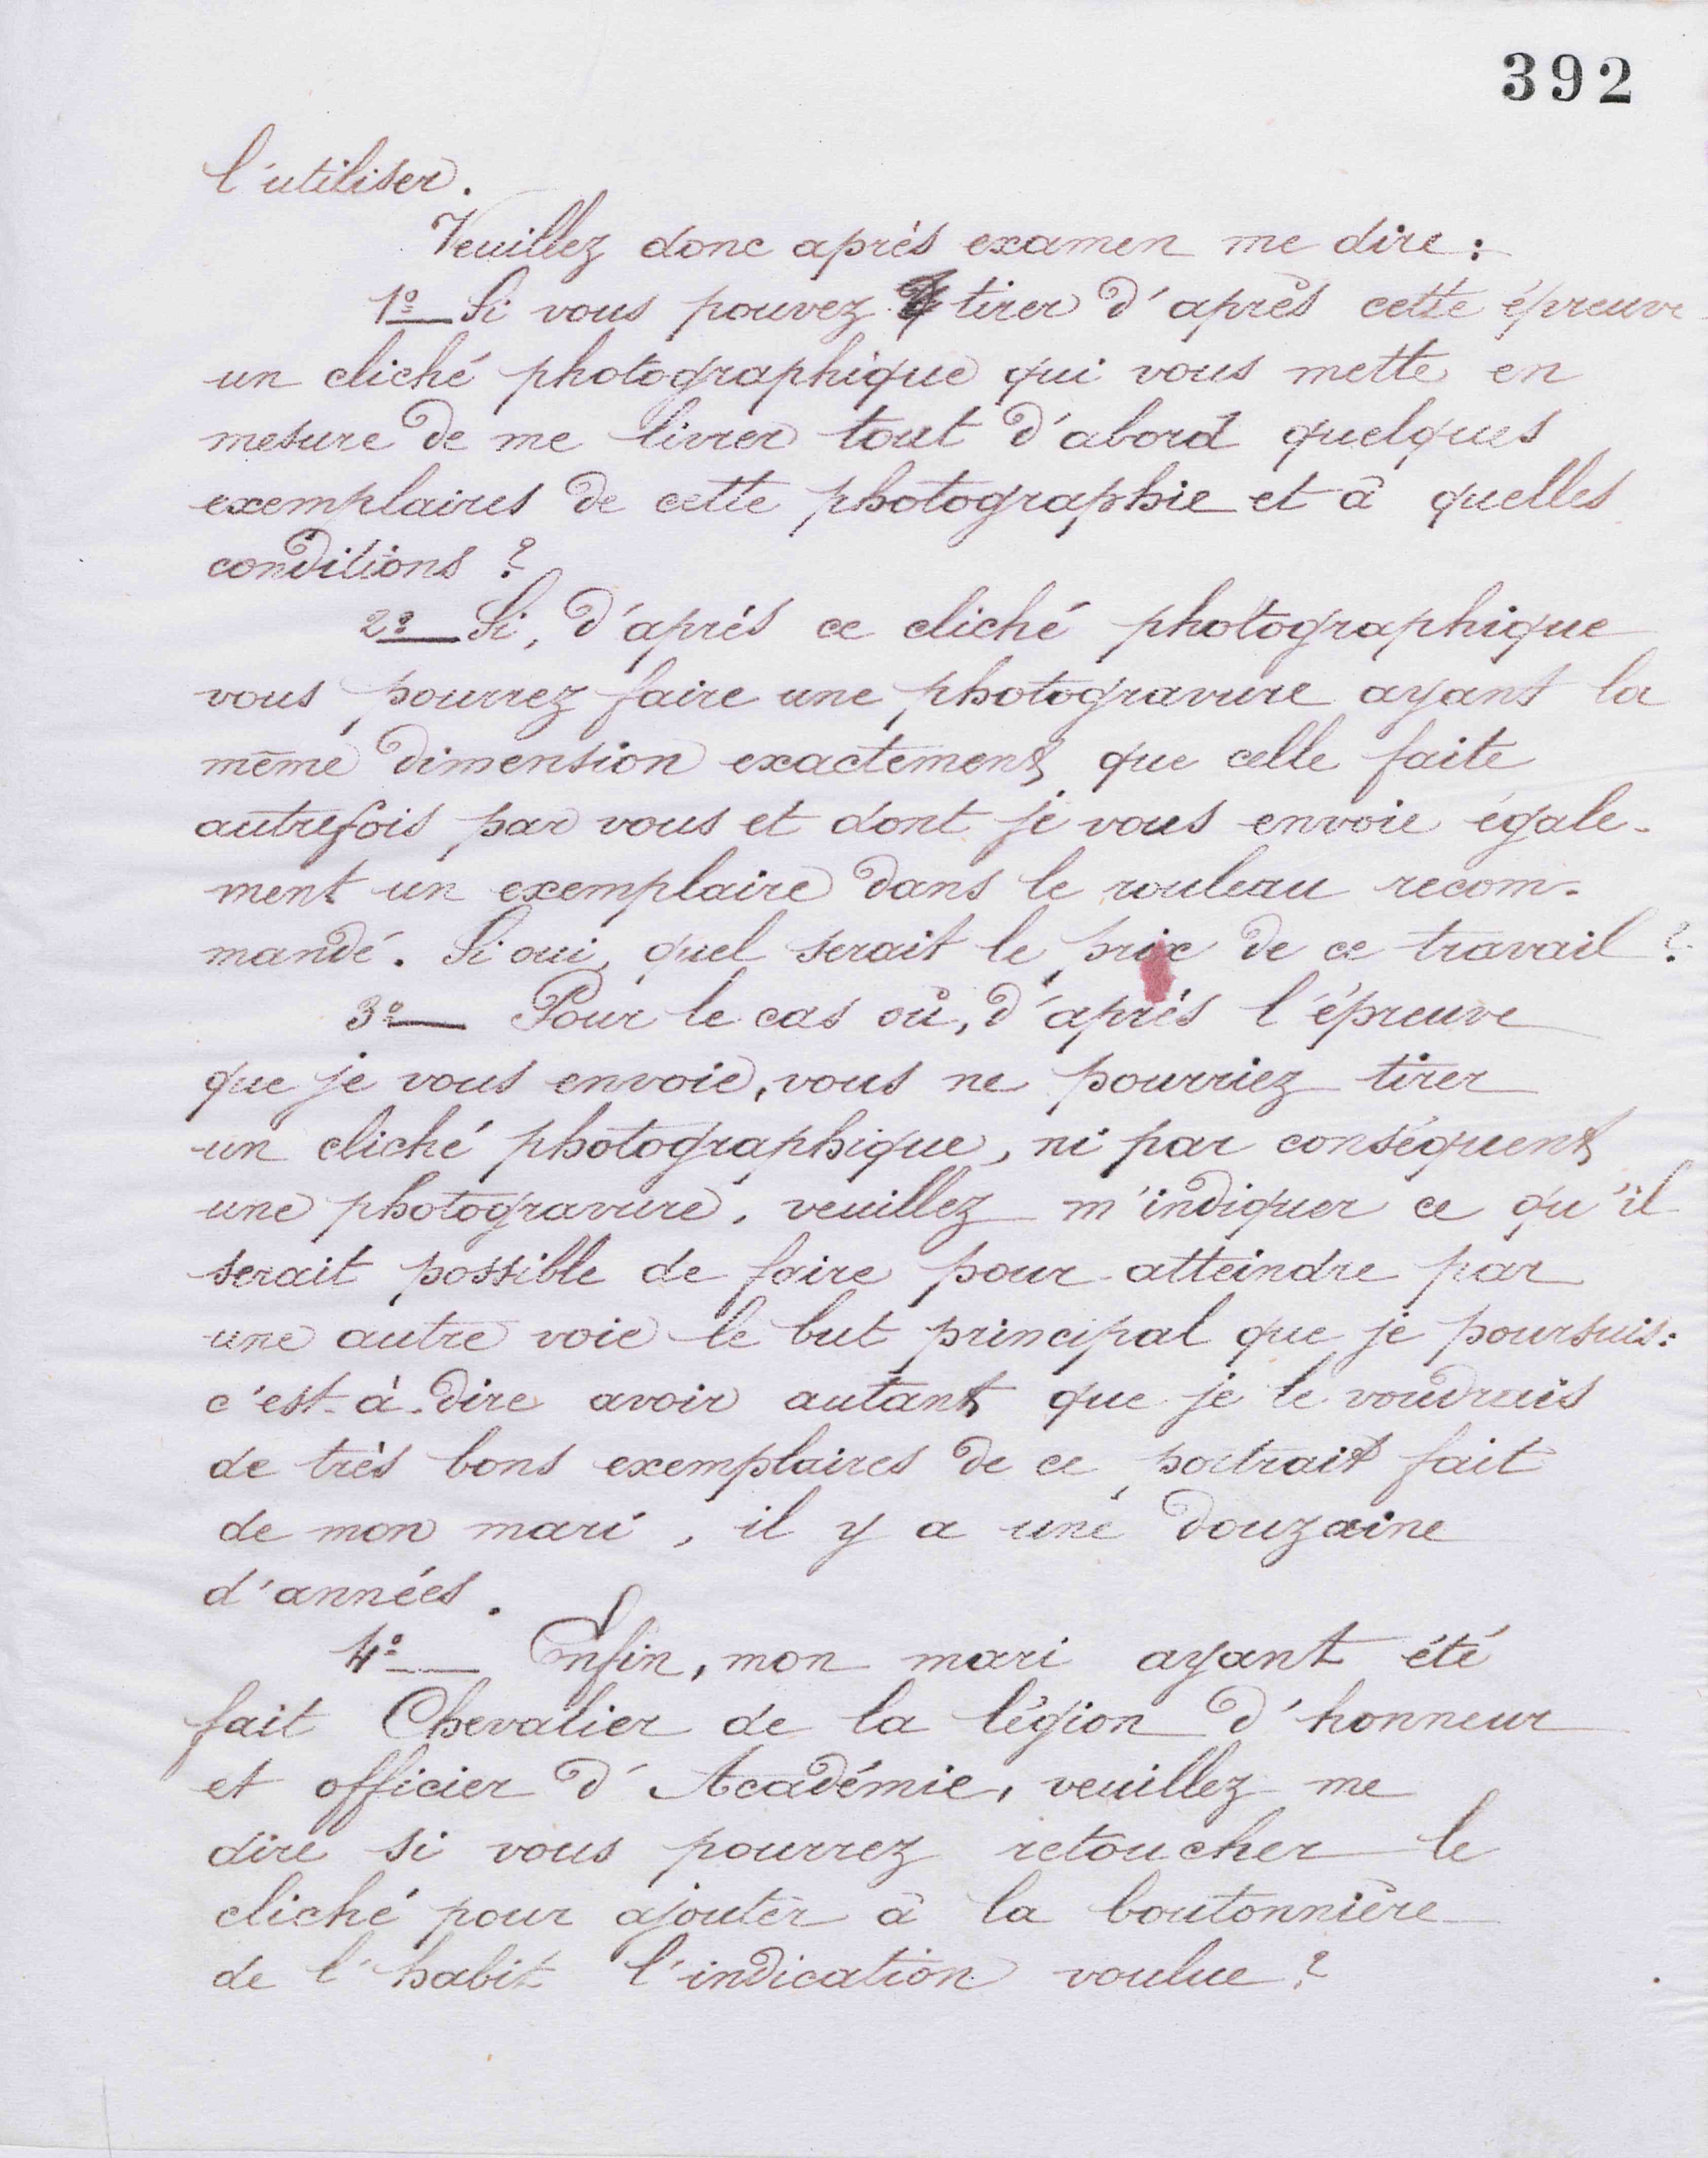 392
l'utiliser.
Veuillez donc après examen me dire :
1º — Si vous pouvez tirer d'après cette épreuve
un cliché photographique qui vous mette en
mesure de me livrer tout d'abord quelques
exemplaires de cette photographie et à quelles
conditions ?
2º — Si, d'après ce cliché photographique
vous pourrez faire une photogravure ayant la
même dimension exactement que celle faite
autrefois par vous et dont je vous envoie égale-
ment un exemplaire dans le rouleau recom-
mandé. Si oui, quel serait le prix de ce travail ?
3º — Pour le cas où, d'après l'épreuve
que je vous envoie, vous ne pourriez tirer
un cliché photographique, ni par conséquent
une photogravure, veuillez m'indiquer ce qu'il
serait possible de faire pour atteindre par
une autre voie le but principal que je poursuis :
c'est-à-dire avoir autant que je le voudrais
de très bons exemplaires de ce portrait fait
de mon mari, il y a une douzaine
d'années.
4º — Enfin, mon mari ayant été
fait Chevalier de la légion d'honneur
et officier d'Académie, veuillez me
dire si vous pourrez retoucher le
cliché pour ajouter à la boutonnière
de l'habit l'indication voulue ?